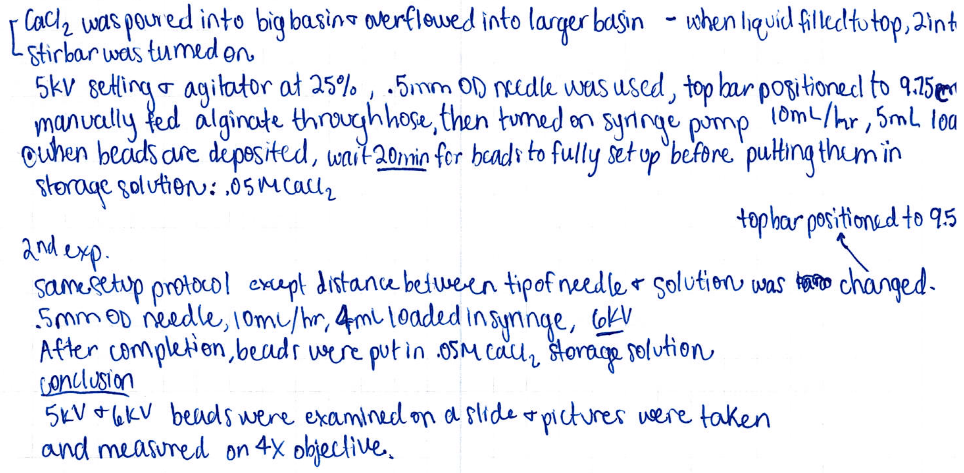 CaCl₂ was poured into big basin & overflowed into larger basin - when liquid filled to top, 2 int
stirbar was turned on
5kV setting & agitator at 25%, .5mm OD needle was used, top bar positioned to 9.75cm
manually fed alginate through hose, then turned on syringe pump 10mL/hr, 5mL loa
when beads are deposited, wait 20min for beads to fully set up before putting them in
storage solution: .05M CaCl₂
top bar positioned to 9.5
2nd exp.
same setup protocol except distance between tip of needle & solution was changed.
.5mm OD needle, 10mL/hr, 4mL loaded in syringe, 6kV
After completion, beads were put in .05M CaCl₂ storage solution
conclusion
5kV & 6kV beads were examined on a slide & pictures were taken
and measured on 4X objective.